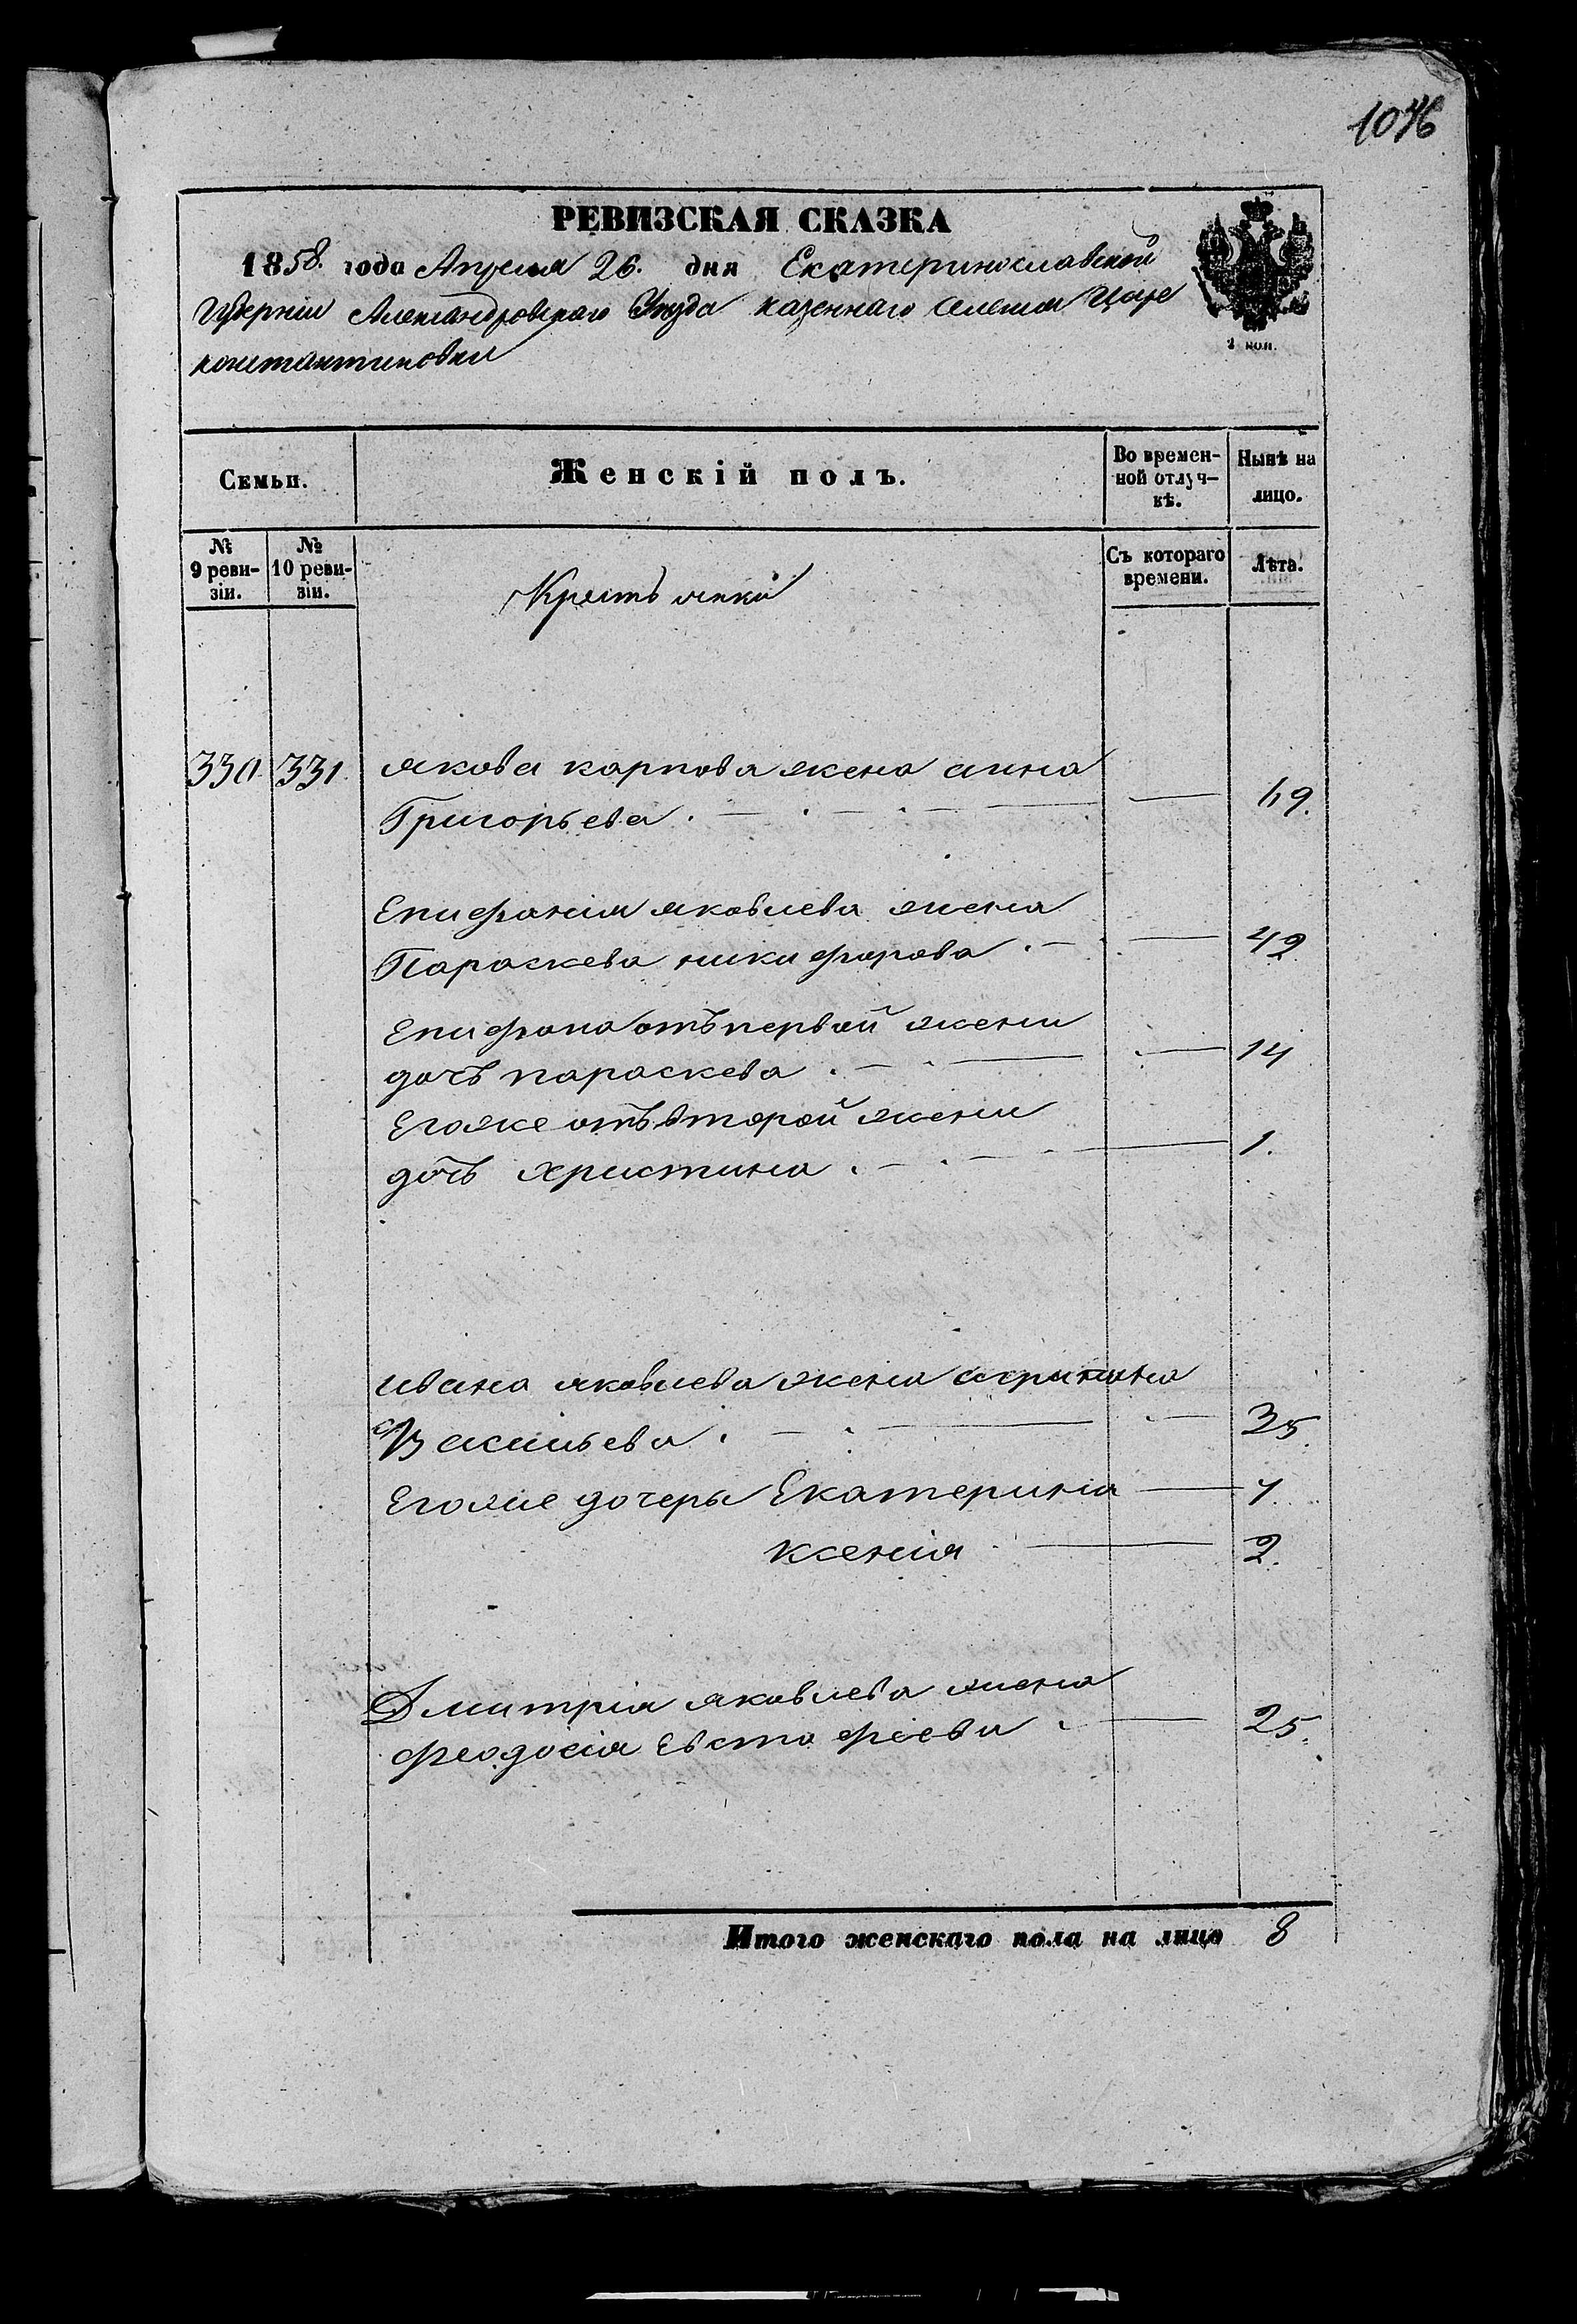 1046
РЕВИЗСКАЯ СКАЗКА
1858. года Апреля 26. дня Екатеринославской
Губерніи Александровскаго Уезда казеннаго селенія Царе
константиновки
2 коп.
Семьи.
Женскій полъ.
Во времен-
ной отлуч-
кѣ.
Нынѣ на
лицо.
№
9 реви-
зіи.
№
10 реви-
зіи.
Съ котораго
времени.
Лѣта.
Крестьянки
330. 331. якова карпова жена анна
Григорьева. 69.
Епифанія яковлева жена
Параскева никифорова. 42
Епифана отъ первой жены
дочь параскева. 14
Егоже отъ второй жены
дочь христина. 1.
ивана яковлева жена
Васильева. 35.
Егоже дочеры Екатерина
ксенія 2.
Дмитрія яковлева жена
феодосія Евстафіева 25.
Итого женскаго пола на лицо 8